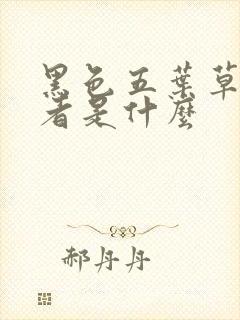 黑色五葉草
者是什麼
郝丹丹